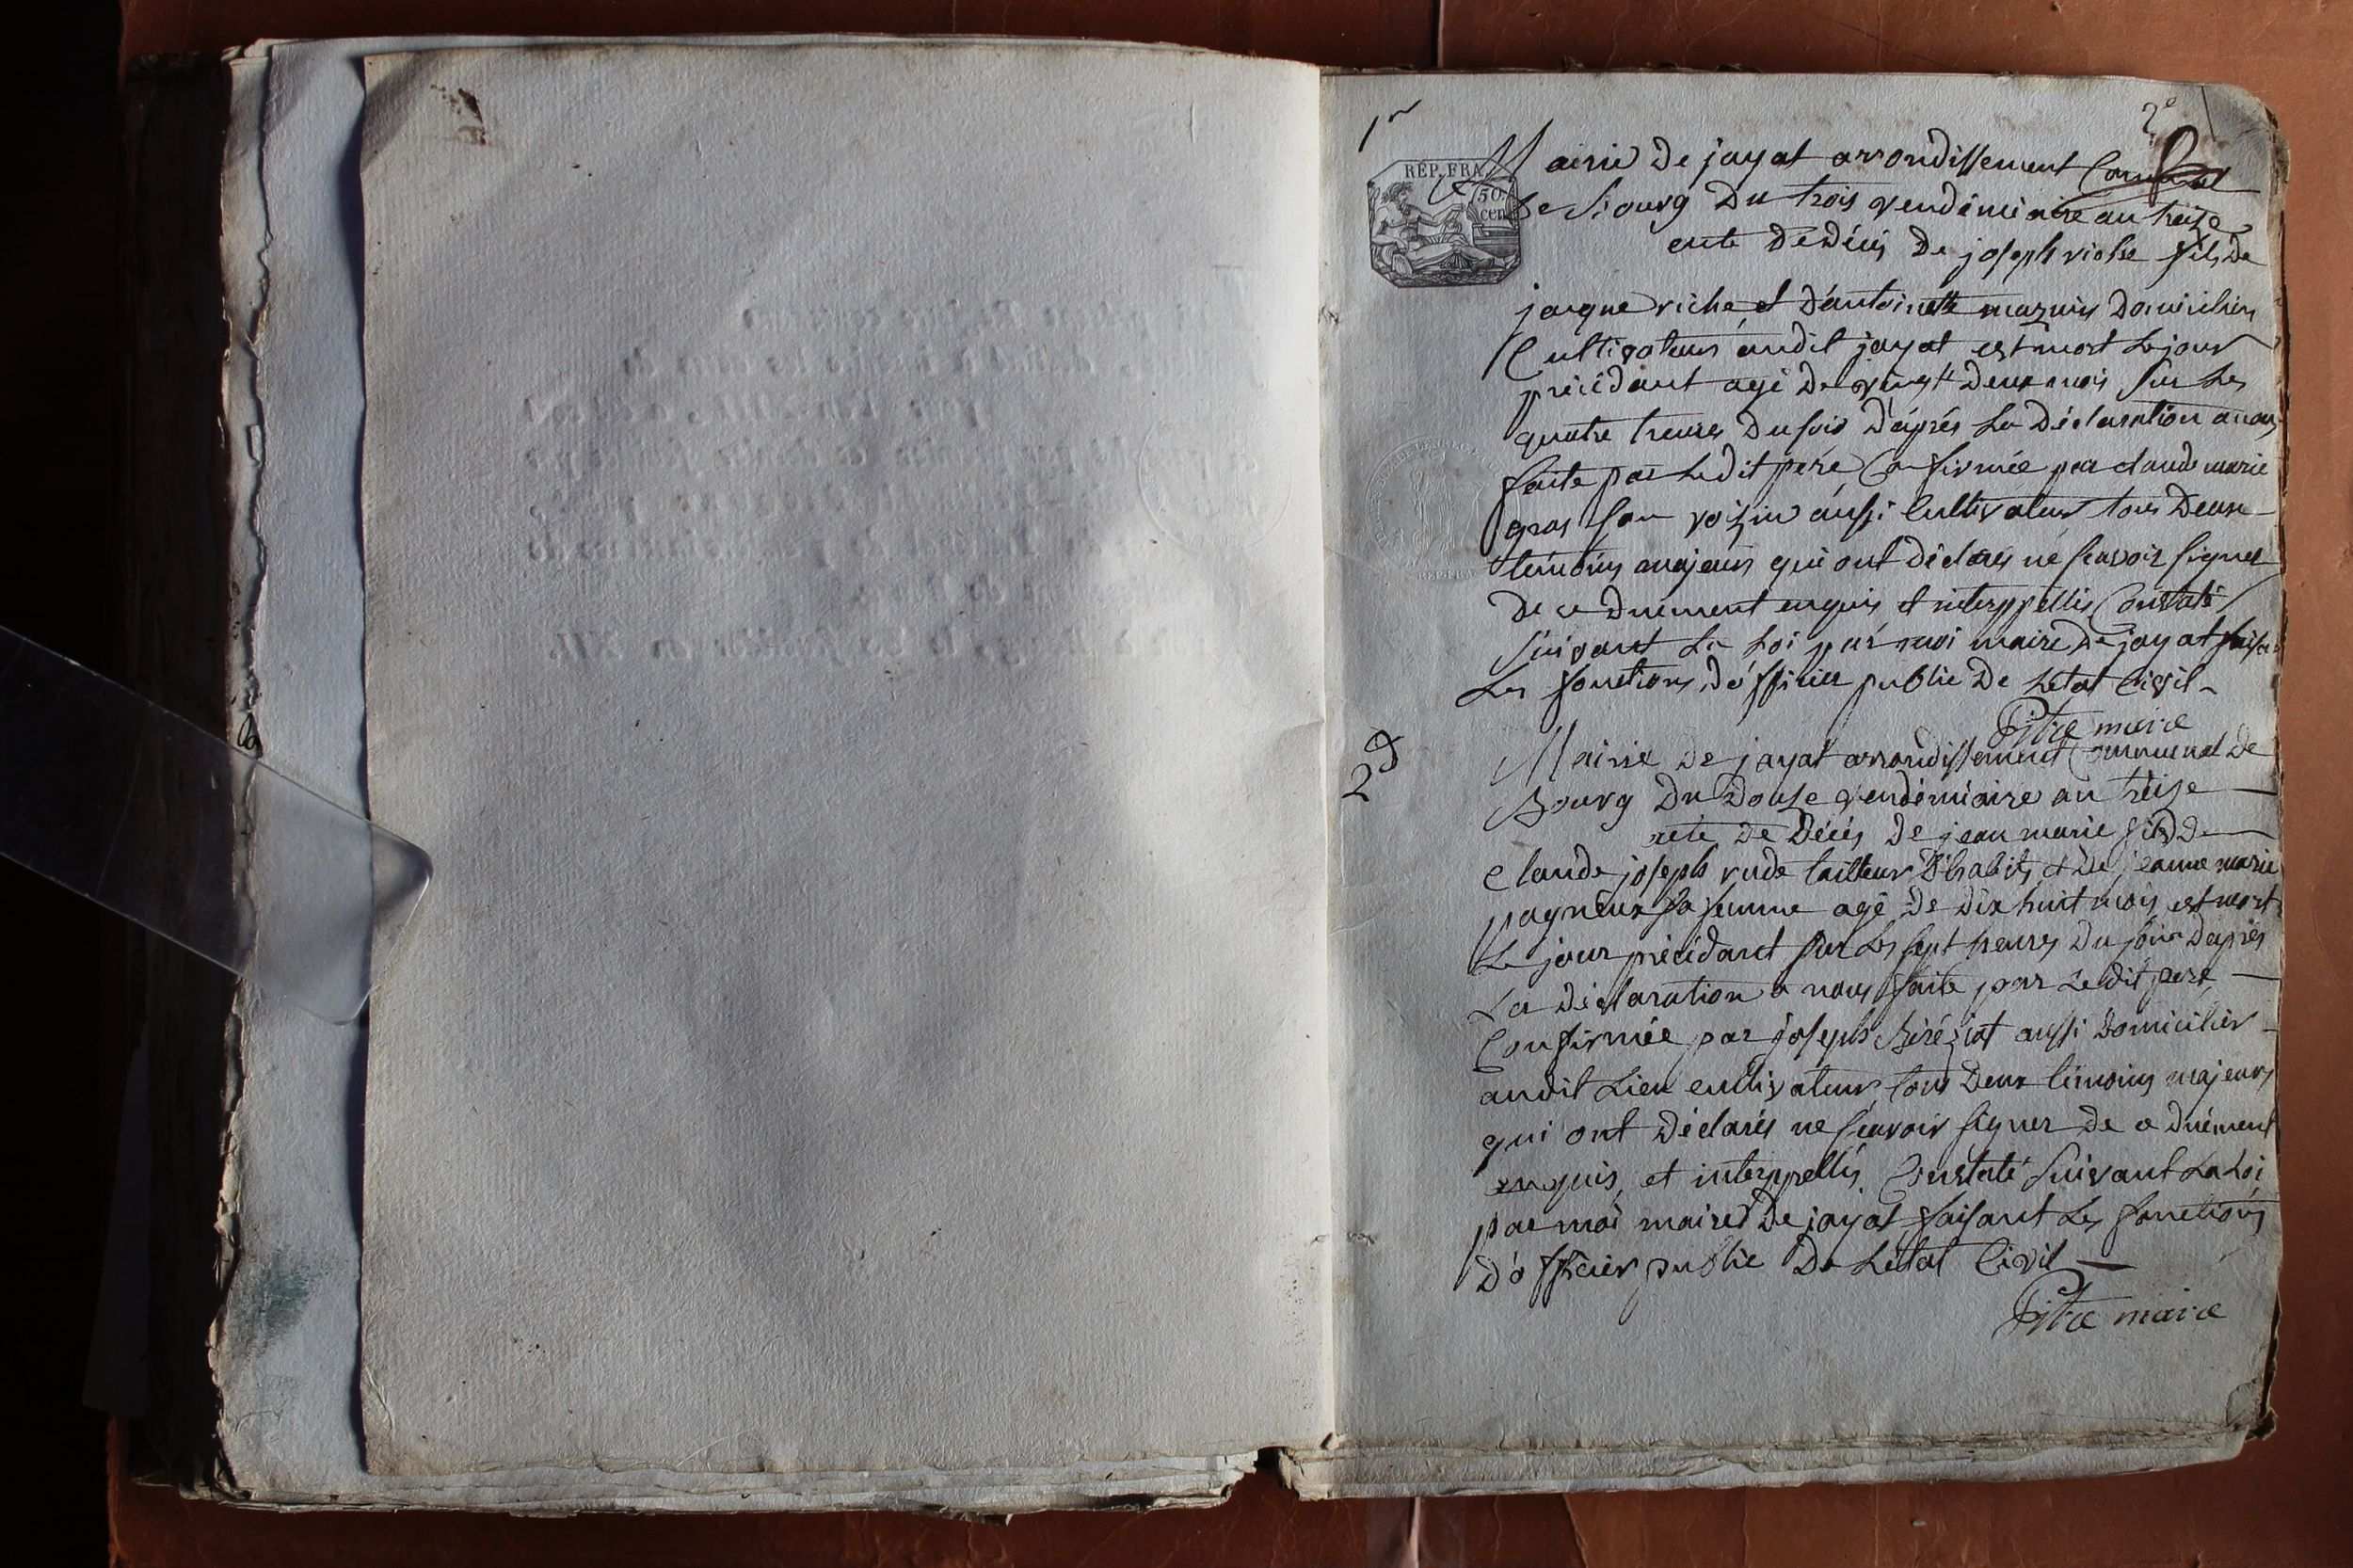 1er
2e
REP. FRA.
50
cen
Mairie De jayat arrondissement Communal
De Bourg Du trois vendémiaire an treize
acte De Décés De joseph riche fils De
jacque riche et D'antoinette mazuir Domiciliés
Cultivateurs audit jayat est mort Le jour
précédant agé De vingt Deux mois sur Les
quatre heures Du soir D'aprés La Déclaration a nous
faite par Le dit pere Confirmée par claude marie
gras son voizin aussi Cultivateur tous Deux
témoins majeurs qui ont déclarés ne scavoir signer
De ce Duement enquis et interppellés Constaté
Suivant La Loi par moi maire De jayat faisant
Les fonctions D'officier public De L'état Civil
Pitre maire
2d
Mairie De jayat arrondissement Communal De
Bourg Du Douze vendémiaire an treize
acte De Décés De jean marie fils De
Claude joseph rude tailleur D'habits et De jeanne marie
pagneux sa femme agé De Dix huit mois est mort
Le jour précédant sur Les sept heures Du soir D'aprés
La Déclaration a nous faite par Le dit pere
Confirmée par joseph Béréziat aussi Domicilier
audit Lieu cultivateur tous Deux témoins majeurs
qui ont Déclarés ne scavoir signer De ce Duément
enquis et interppellés Constaté Suivant La Loi
par moi maire De jayat faisant Les fonctions
D'officier public De L'état Civil
Pitre maire